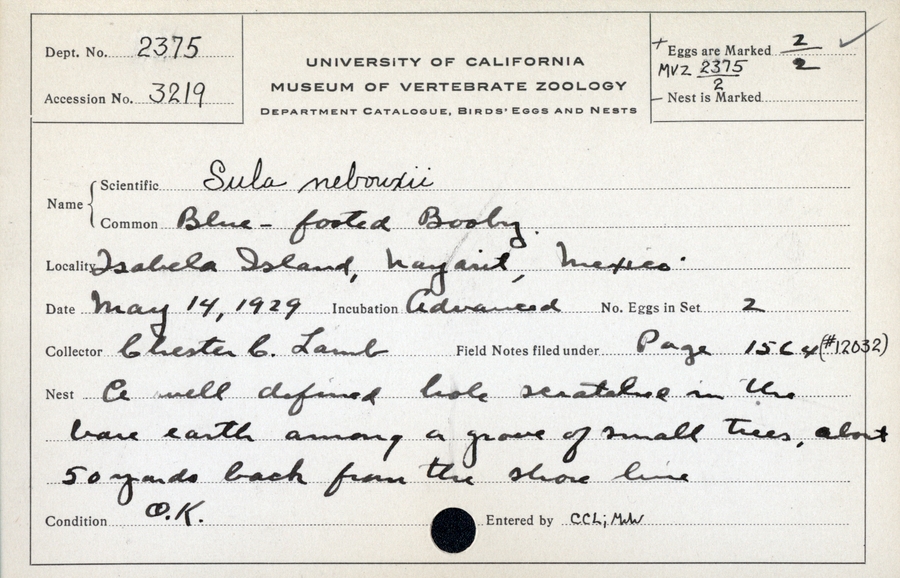 Dept. No. 2375
Accession No. 3219
UNIVERSITY OF CALIFORNIA
MUSEUM OF VERTEBRATE ZOOLOGY
DEPARTMENT CATALOGUE, BIRDS' EGGS AND NESTS
+ Eggs are Marked 2/2 ✓
MVZ 2375/2
– Nest is Marked
Name { Scientific Sula nebouxii
Common Blue-footed Booby.
Locality Isabela Island, Nayarit, Mexico.
Date May 14, 1929 Incubation Advanced No. Eggs in Set 2
Collector Chester C. Lamb Field Notes filed under Page 1564 (#12032)
Nest A well defined hole scratched in the
bare earth among a grove of small trees, about
50 yards back from the shore line
Condition O.K. Entered by CCL;